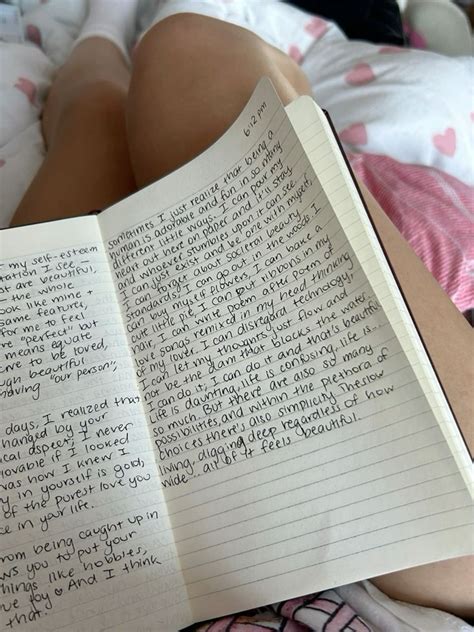 - my self-esteem
I see -
are beautiful,
the whole
look like mine +
same features,
for me to feel
"perfect" but
means equate
to be loved,
beautiful
having "our person",
days, I realized tha
changed by your
aspect. I never
lovable if I looked
was how I knew I
in yourself is gold,
of the purest love you
in your life.
from being caught up in
you to put your
things like hobbies,
joy And I think
that.
6:12 pm
sometimes I just realize that being a
human is adorable and fun in so many
different little ways. I can pour my
heart out here on paper and it'll stay
and whoever stumbles upon it can see.
I can just exist and be one with myself,
I can forget about societal beauty
standards, I can go out in the woods. I
can buy myself flowers, I can bake a
cute little pie, I can put ribbons in my
hair, I can write poem after poem of
love songs remixed in my head thinking
of my lover. I can disregard technology?
I can let my thoughts just flow and
not be the dam that blocks the water.
I can do it, I can do it and that's beautiful.
life is daunting, life is confusing, life is..
so much. But there are also so many
possibilities, and within the plethora of
choices there's also simplicity. The slow
living, digging deep regardless of how
wide. all of it feels beautiful.